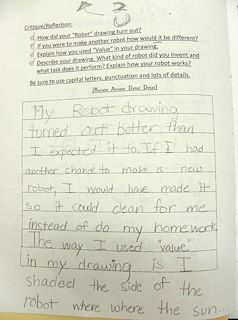 Critique/Reflection:
How did your "Robot" drawing turn out?
If you were to make another robot how would it be different?
Explain how you used "Value" in your drawing.
Describe your drawing. What kind of robot did you invent and
what task does it perform? Explain how your robot works?
Be sure to use capital letters, punctuation and lots of details.
(Restate Answer Detail Detail)
My Robot drawing
turned out better than
I expected it to. If I had
another chance to make a new
robot, I would have made it
so it could clean for me
instead of do my homework
The way I used "value"
in my drawing is I
shaded the side of the
robot where where the sun...